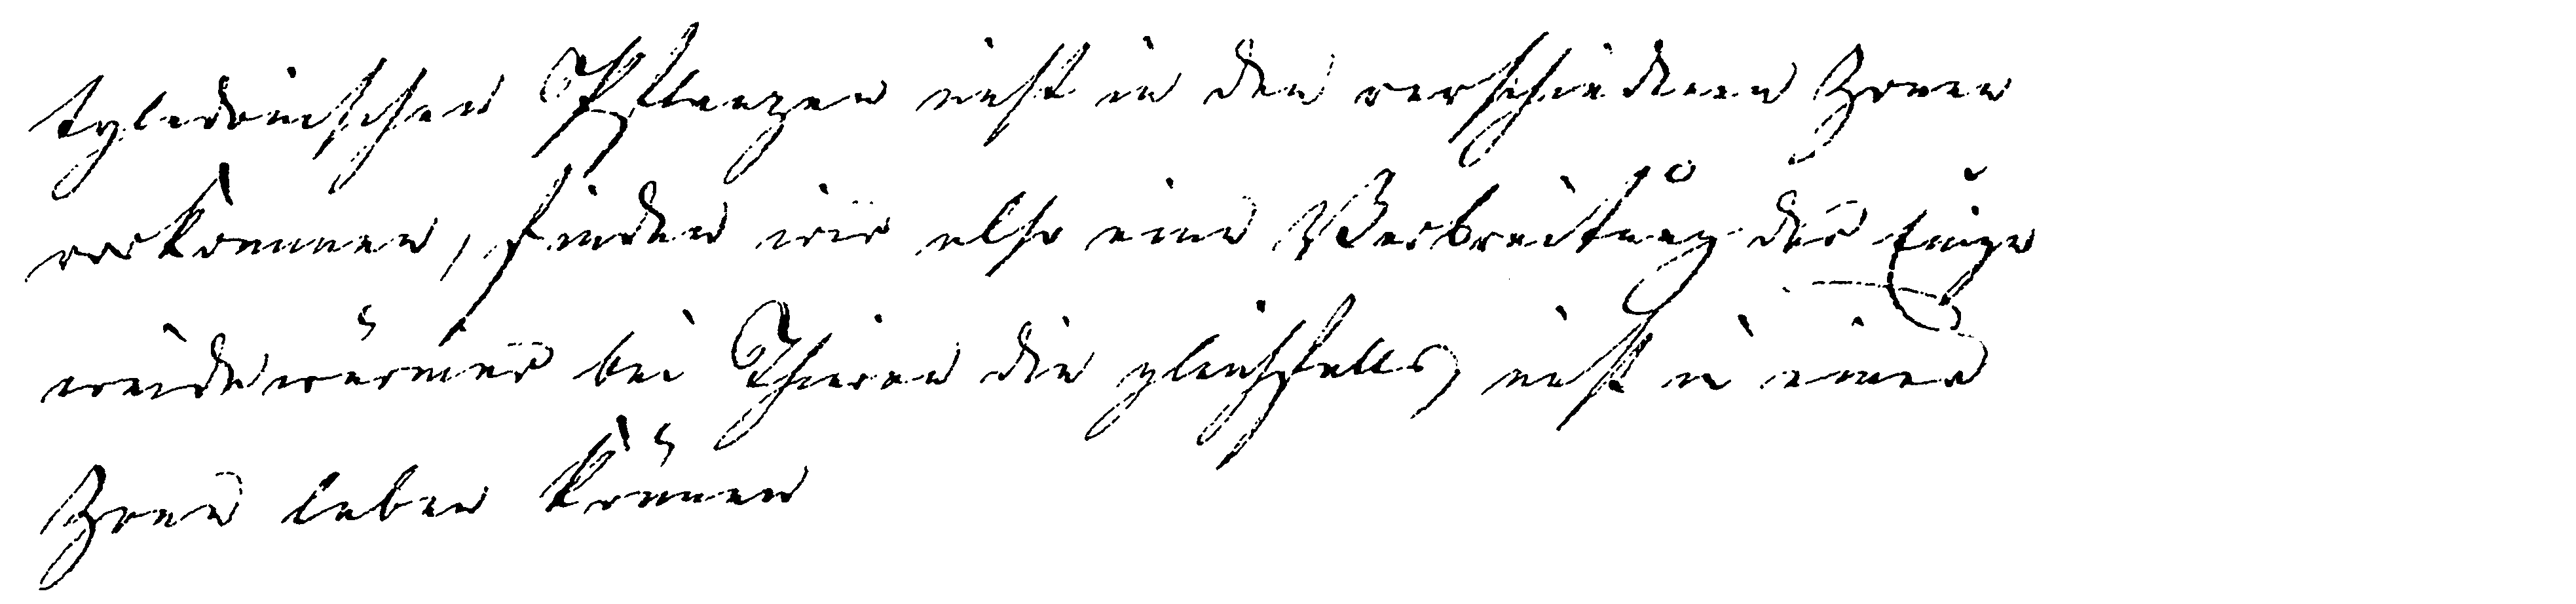 tyledonischen Pflanzen nicht in den verschiedenen Zonen
vorkommen, finden wir also eine Verbreitung der Einge
weidewürmer bei Thieren die gleichfalls nicht in einer
Zone leben können